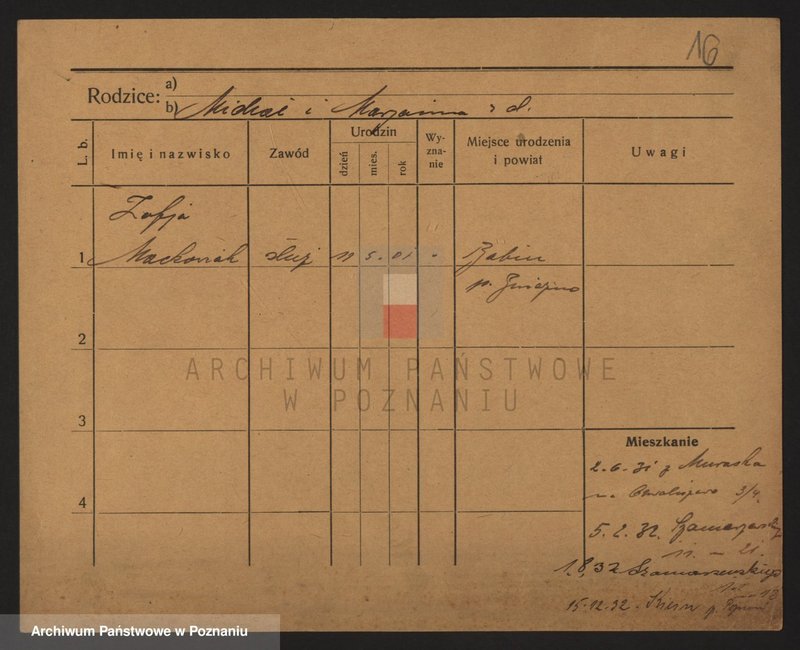 16
Rodzice: a)
b) Michał i Marjanna z d.
L. b.
Imię i nazwisko
Zawód
Urodzin
dzień
mies.
rok
Wy-
zna-
nie
Miejsce urodzenia
i powiat
Uwagi
Zofja
1 Maćkowiak służ 11 5. 01 Babin
p. Gniezno
2
ARCHIWUM PAŃSTWOWE
W POZNANIU
3
Mieszkanie
2.6.31 z Muraska
3/4.
4
5.2.32. Szamarzewsk
11 – 21.
1.8,32 Szamarzewskiego
15.12.32 p.
Archiwum Państwowe w Poznaniu